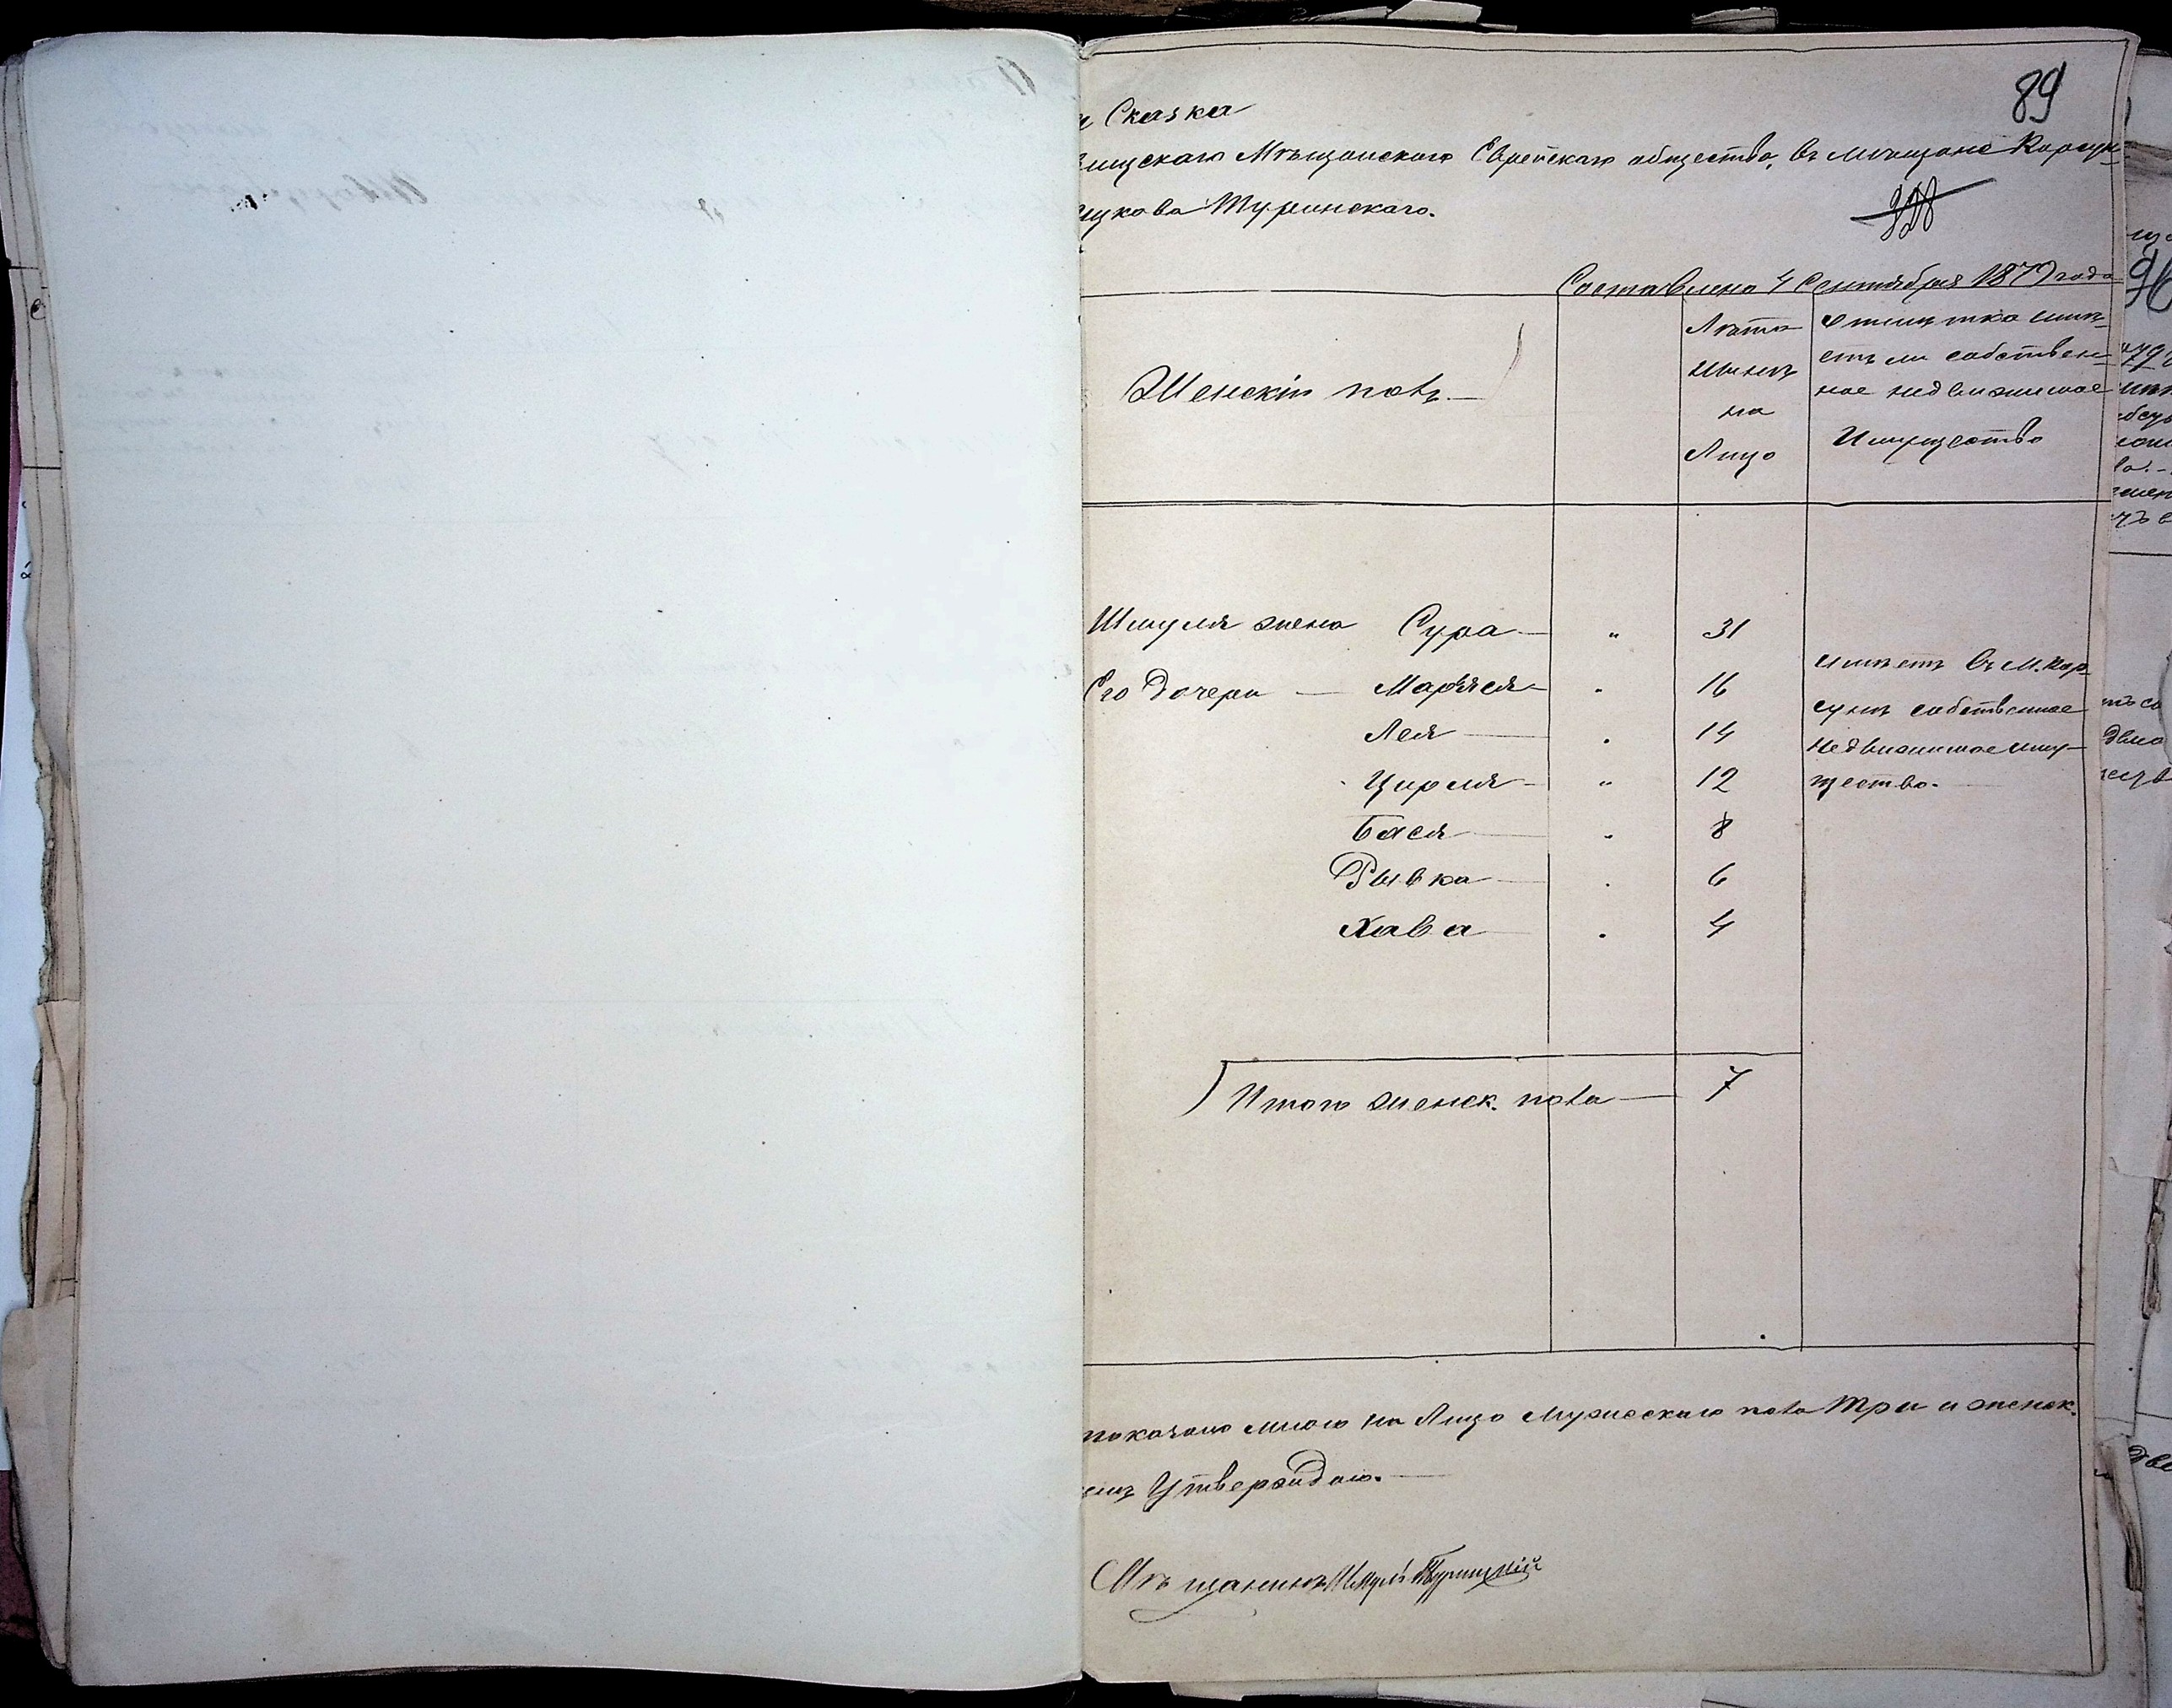 89
Сказка
Мѣщанскаго Еврейскаго общества, въ мѣщане Корсун-
Туринскаго.
328
Составлена 4 Сентября 1879 года
Женскій полъ.
Лѣта
нынѣ
на
Лицо
Отмѣтка имѣ-
етъ ли собствен-
ное недвижимое
Имущество
Шмуля жена Сура „ 31
Его Дочери Марьяся „ 16
Лея „ 14
Цирля „ 12
Бася „ 8
Рывка „ 6
Хава „ 4
имѣетъ въ м. Кор-
сунѣ собственное
недвижимое иму-
щество.
Итого женск. пола 7
показано мною на Лицо мужескаго пола три и женск.
Утверждаю.
Мѣщанинъ Шмуль Туринскій